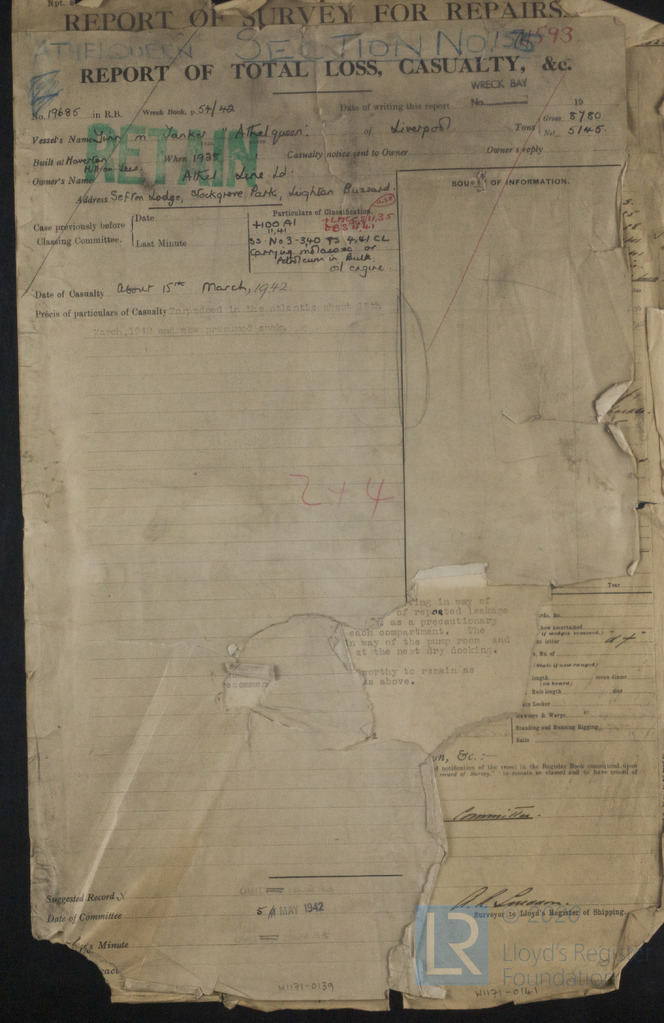 Rpt.
REPORT OF SURVEY FOR REPAIRS.
"ATHELQUEEN" SECTION No.
REPORT OF TOTAL LOSS, CASUALTY, &c.
WRECK BAY
No. 19685 in R.B. Wreck Book, p. 54/42 Date of writing this report No. 19
Vessel's Name Twin sc Tanker "Athelqueen". of Liverpool Tons Gross 8780 Net 5145.
RETAIN
Built at Haverton Hill-on-Tees When 1935 Casualty notice sent to Owner Owner's reply
Owner's Name Athel Line Ld.
Address Sefton Lodge, Stockgrove Park, Leighton Buzzard.
SOURCE OF INFORMATION.
Case previously before Classing Committee. Date
Last Minute
Particulars of Classification.
+100 A1
11,41
SS. No 3-3,40 TS 4,41 CL
Carrying molasses or
Petroleum in Bulk.
oil engine.
Date of Casualty About 15th March, 1942.
Précis of particulars of Casualty Torpedoed in the Atlantic about 15th
March, 1942 and now presumed sunk.
2 + 4
ing in way of
of reported leakage
as a precautionary
each compartment. The
n way of the pump room and
at the next dry docking.
worthy to remain as
as above.
Year
(if wedges removed.)
(State if new ranged)
length mean diamr
(on board)
Rule length size
Locker
Hawsers & Warps
Standing and Running Rigging
Sails
on, &c. :—
notification of the vessel in the Register Book consequent upon
record of Survey," to remain as classed and to have record of
Committee.
Suggested Record
Date of Committee 5 MAY 1942
Surveyor to Lloyd's Register of Shipping.
Minute
© 2020
LR
Lloyd's Register
Foundation
W1171-0139
W1171-0141